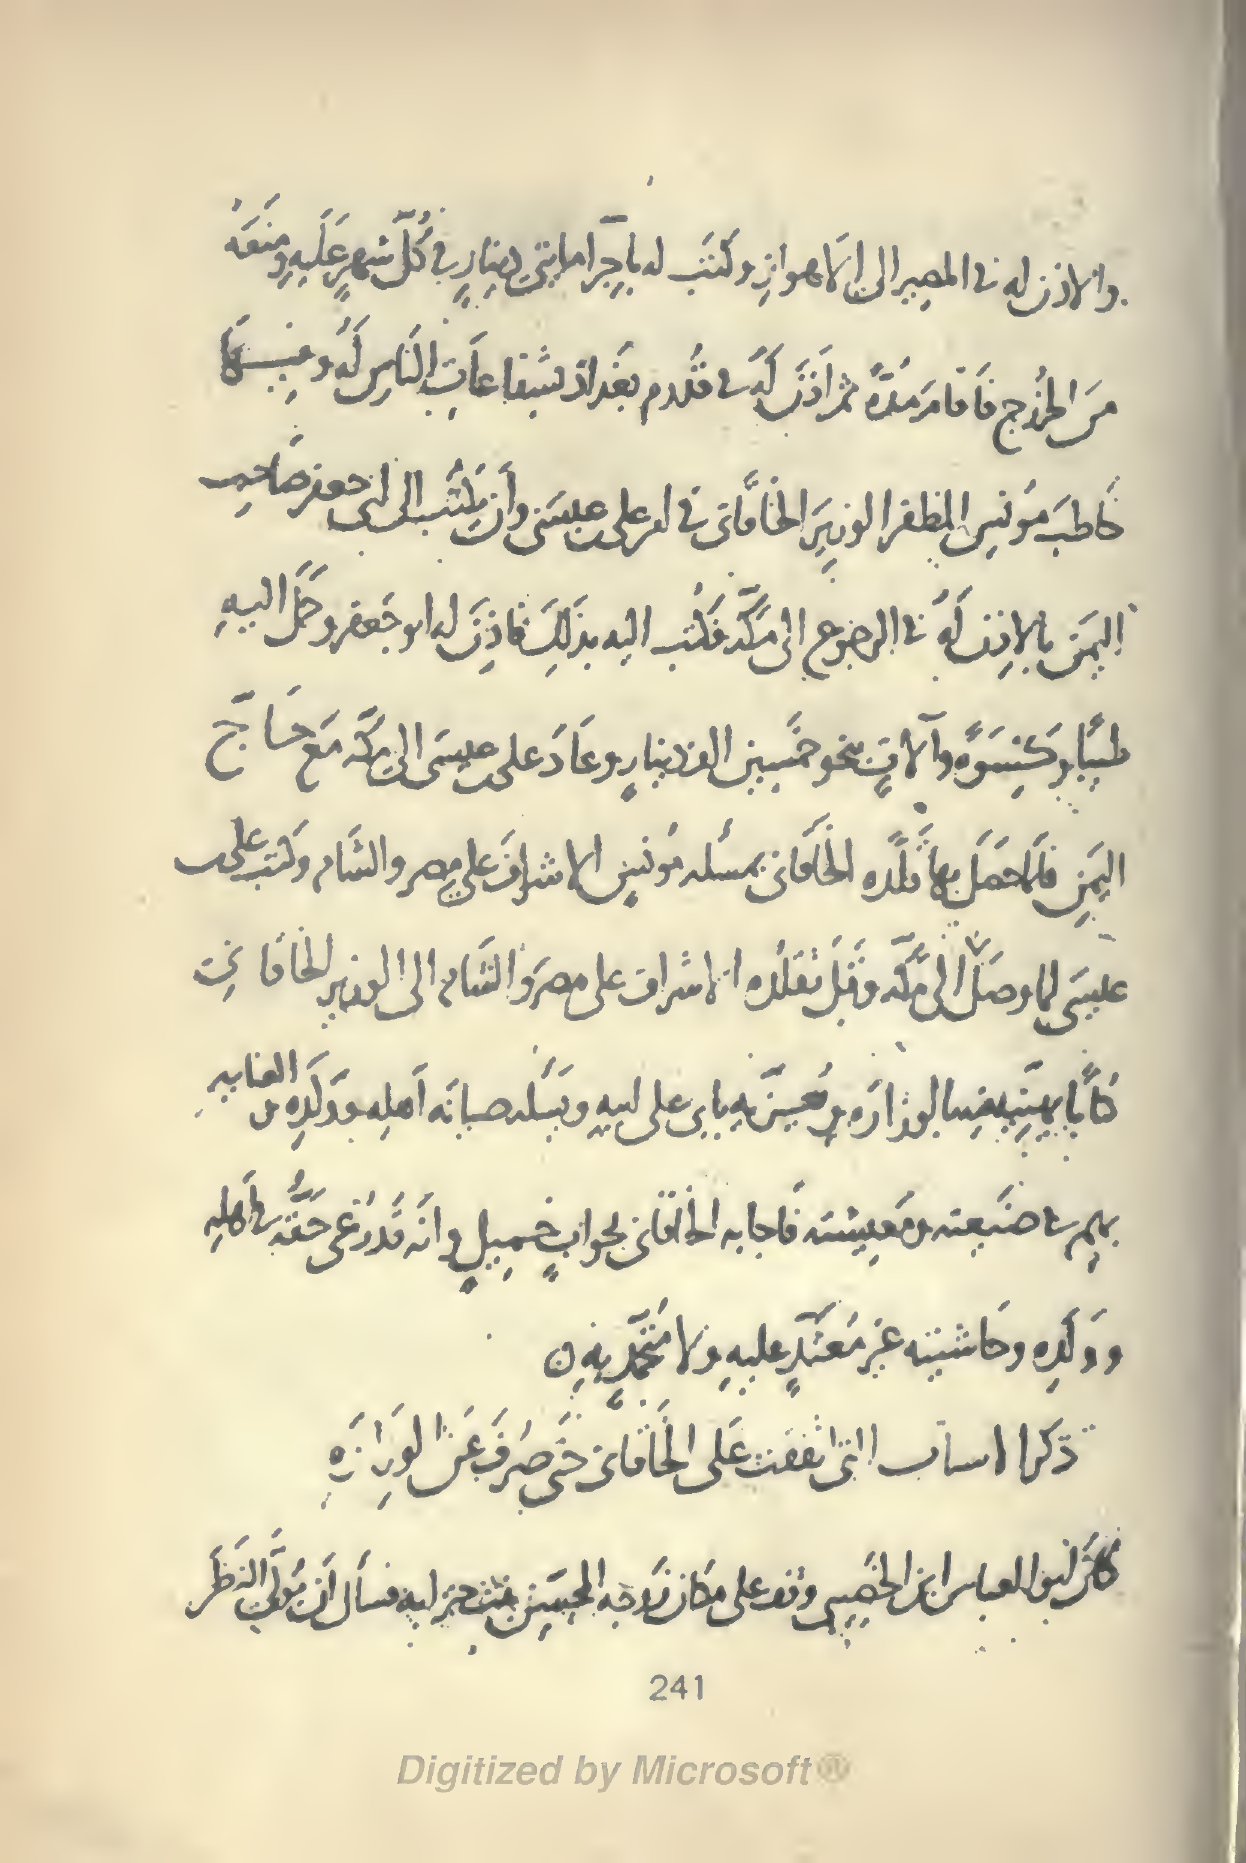 والاذن له في المصير الى الاهواز وكتب له باجرا مايتي دينار في كل شهر عليه ومنعه
من الخروج فاقام مدة ثم اذن له في قدوم بغداد بشفاعات الناس له وفيها
خاطب مونس المظفر الوزير الخاقاني في امر علي بن عيسى وأن يكتب الى ابي جعفر صاحب
اليمن بالاذن له في الرجوع الى مكة فكتب اليه بذلك فاذن له ابو جعفر وحمل اليه
طيبا وكسوة وآلات بنحو خمسين الف دينار وعاد علي بن عيسى الى مكة مع حاج
اليمن فلما حصل بها قلده الخاقاني بمسئلة مونس الاشراف على مصر والشام وكتب علي بن
عيسى لما وصل الى مكة وقبل تقلده الاشراف على مصر والشام الى الوزير الخاقاني
كتابا يهنيه فيه بالوزارة ويعزيه بابي علي ابيه ويسئله صيانة اهله وولده والعناية
بهم في ضيعته ومعيشته فاجابه الخاقاني بجواب جميل وانه قد رعى حقه في اهله
وولده وحاشيته غير معتد عليه ولا متحمد به
ذكر الاسباب التي اتفقت على الخاقاني حتى صرف عن الوزارة
كان ابو العباس ابن الخصيبي وقف على مكان زوجة المحسن بنت حنزابه فسأل أن يولى النظر
241
Digitized by Microsoft®